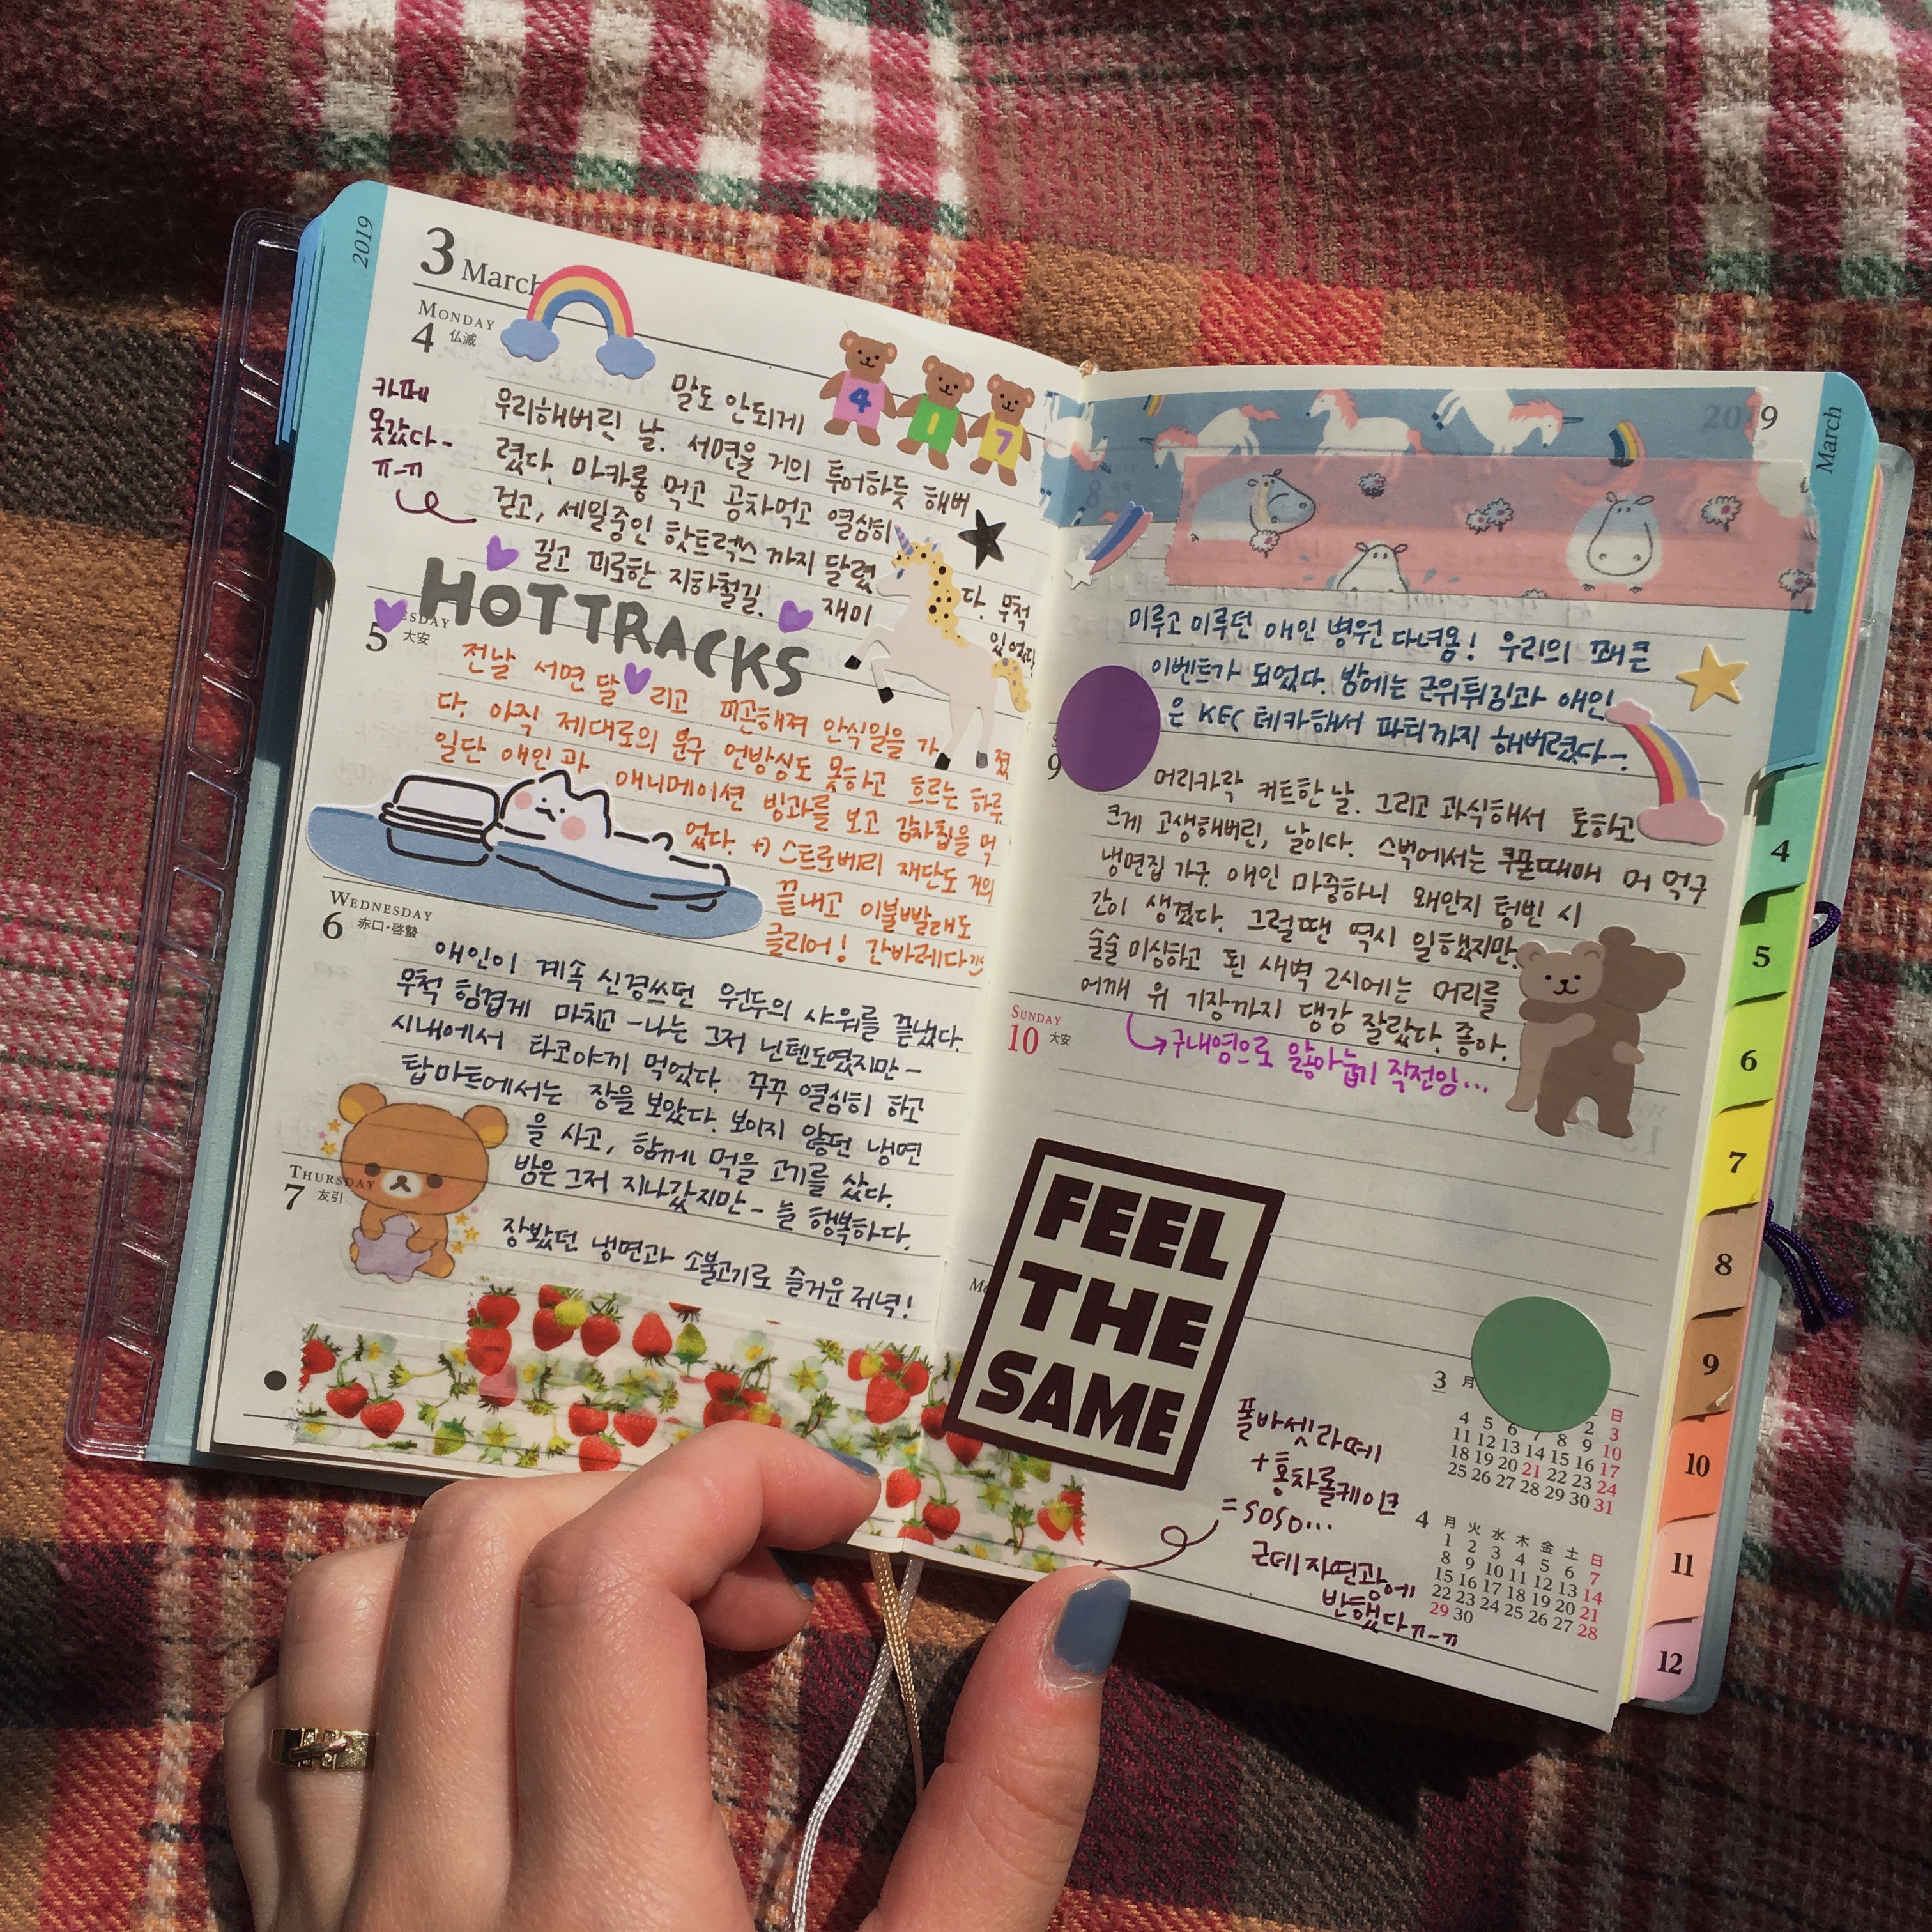 2019
3 March
MONDAY
4 仏滅
4 1 7
말도 안되게
우리해버린 날. 서면을 거의 투어하듯 해버
렸다. 마카롱 먹고 공차먹고 열심히
걷고, 세일중인 핫트랙스 까지 달렸
다. 무척
길고 괴로한 지하철길. 재미
있었다
카페
못갔다-
ㅠ-ㅠ
HOTTRACKS
5 大安
전날 서면 달리고 피곤해져 안식일을 가졌
다. 아직 제대로의 문구 언방싱도 못하고 흐르는 하루.
일단 애인과 애니메이션 빙과를 보고 감자칩을 먹
었다. +) 스트로베리 재단도 거의
끝내고 이불빨래도
클리어! 간바레다
WEDNESDAY
6 赤口・啓蟄
애인이 계속 신경쓰던 원두의 샤워를 끝냈다.
무척 힘겹게 마치고 -나는 그저 닌텐도였지만-
시내에서 타코야끼 먹었다. 꾸꾸 열심히 하고
탑마트에서는 장을 보았다. 보이지 않던 냉면
을 사고, 함께 먹을 고기를 샀다.
밤은 그저 지나갔지만- 늘 행복하다.
THURSDAY
7 友引
장봤던 냉면과 소불고기로 즐거운 저녁!
2019
March
미루고 미루던 애인 병원 다녀옴! 우리의 꽤 큰
이벤트가 되었다. 밤에는 근위튀김과 애인
은 KFC 테카해서 파티까지 해버렸다-.
9
머리카락 커트한 날. 그리고 과식해서 토하고
크게 고생해버린, 날이다. 스벅에서는 쿠폰때매 머 먹구
냉면집 가구. 애인 마중하니 왜안지 텅빈 시
간이 생겼다. 그럴땐 역시 일했지만.
술술 미싱하고 된 새벽 2시에는 머리를
어깨 위 기장까지 댕강 잘랐다. 좋아.
SUNDAY
10 大安
구내염으로 앓아눕기 직전임...
FEEL
THE
SAME
폴바셋라떼
+홍차롤케이크
=soso...
근데 자연광에
반했다ㅠ-ㅠ
3 月 日
2 3
4 5 6 7 8 9 10
11 12 13 14 15 16 17
18 19 20 21 22 23 24
25 26 27 28 29 30 31
4 月 火 水 木 金 土 日
1 2 3 4 5 6 7
8 9 10 11 12 13 14
15 16 17 18 19 20 21
22 23 24 25 26 27 28
29 30
4
5
6
7
8
9
10
11
12